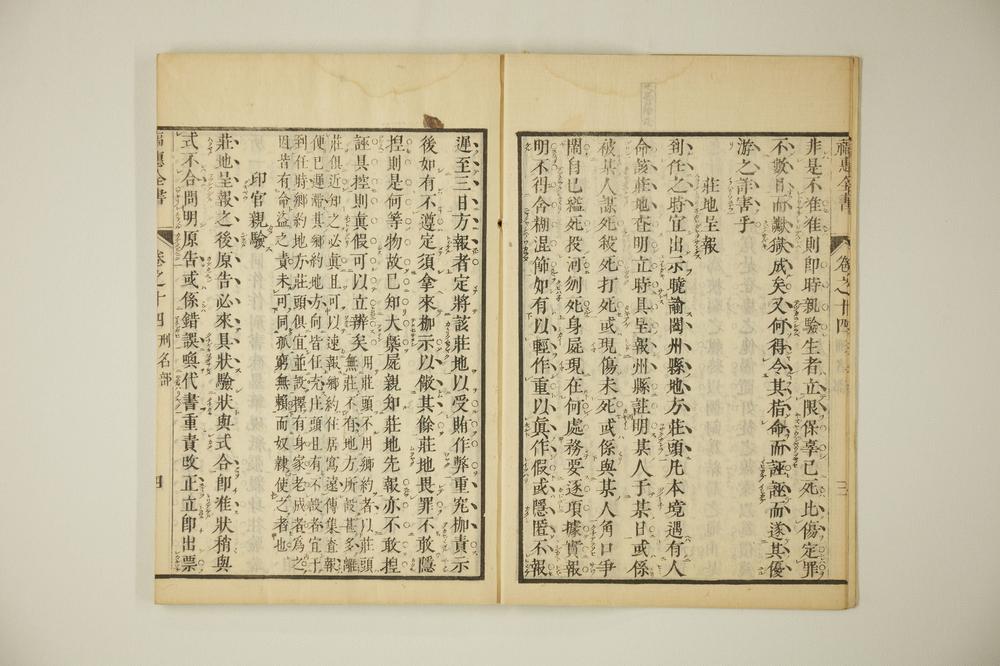 非是不准准則即時親驗生者立限保辜已死比傷定罪
不數日而讞獄成矣又何得令其指命而誣誣而遂其優
游之詐害乎
莊地呈報
到任之時宜出示曉諭闔州縣地方莊頭凡本境遇有人
命該莊地查明立時具呈報州縣註明某人于某日或係
被某人謀死毆死打死或現傷未死或係與某人角口爭
鬧自已縊死投河刎死身屍現在何處務要逐項據實報
明不得含糊混飾如有以輕作重以眞作假或隱匿不報
福惠全書 卷之十四 三
遲至三日方報者定將該莊地以受賄作弊重究枷責示
後如有不遵定須拿來枷示以儆其餘莊地畏罪不敢隱
捏則是何等物故已知大槩屍親知莊地先報亦不敢捏
誣具控則眞假可以立辨矣
用莊頭不用鄉約者以莊頭
無莊不有地方所設甚多離
莊俱近知之必眞且可以速報鄉約住居寫遠傳集查報
便已遲滯其鄉約地方向皆任充庄頭且有不設者宜于
到任時鄉約地方莊頭俱宜並設擇有身家老成者為之
因皆有命盜之責未可同孤窮無賴而奴隸使之者也
印官親驗
莊地呈報之後原告必來具狀驗狀與式合即准狀稍與
式不合問明原告或係錯誤喚代書重責改正立即出票
福惠全書 卷之十四 刑名部 四